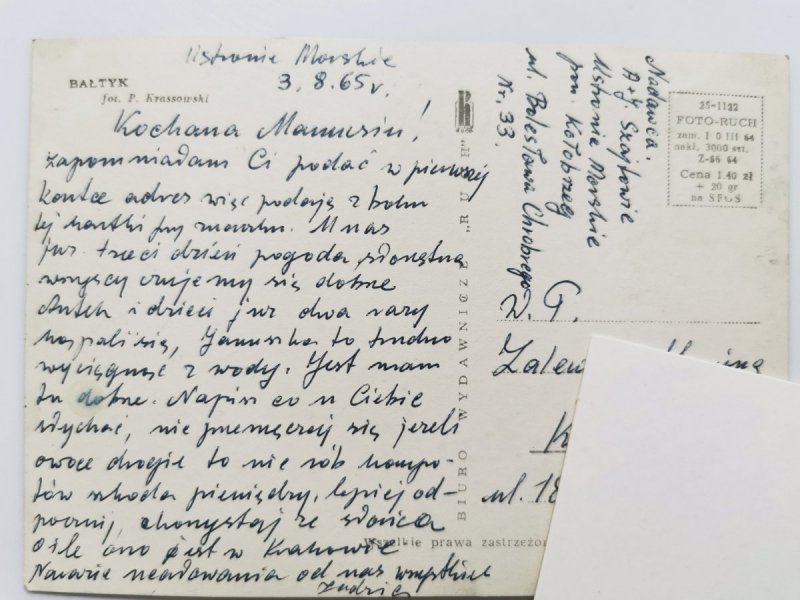 Ustronie Morskie
3.8.65 r.
BAŁTYK
fot. P. Krassowski
Kochana Mamusiu!
zapomniałam Ci podać w pierwszej
kartce adres więc podaję z boku
tej kartki
już trzeci dzień pogoda słoneczna
wszyscy czujemy się dobrze
Antek i dzieci już dwa razy
kąpali się, Januszka to trudno
wyciągnąć z wody. Jest nam
tu dobrze. Napisz co u Ciebie
słychać, nie przemęczaj się jeżeli
owoce drogie to nie rób kompo-
tów szkoda pieniędzy, lepiej od-
pocznij, skorzystaj ze słońca
o ile ono jest w Krakowie
Na razie ucałowania od nas wszystkich
BIURO WYDAWNICZE „RUCH"
Nadawca.
A+J. Szajtowie
Ustronie Morskie
pow. Kołobrzeg
ul. Bolesława Chrobrego
Nr. 33.
25-1122
FOTO-RUCH
zam. 10 III 64
nakł. 3000 szt.
Z-66 64
Cena 1.40 zł
+ 20 gr
na SFOS
W. P.
ul. 18
Wszelkie prawa